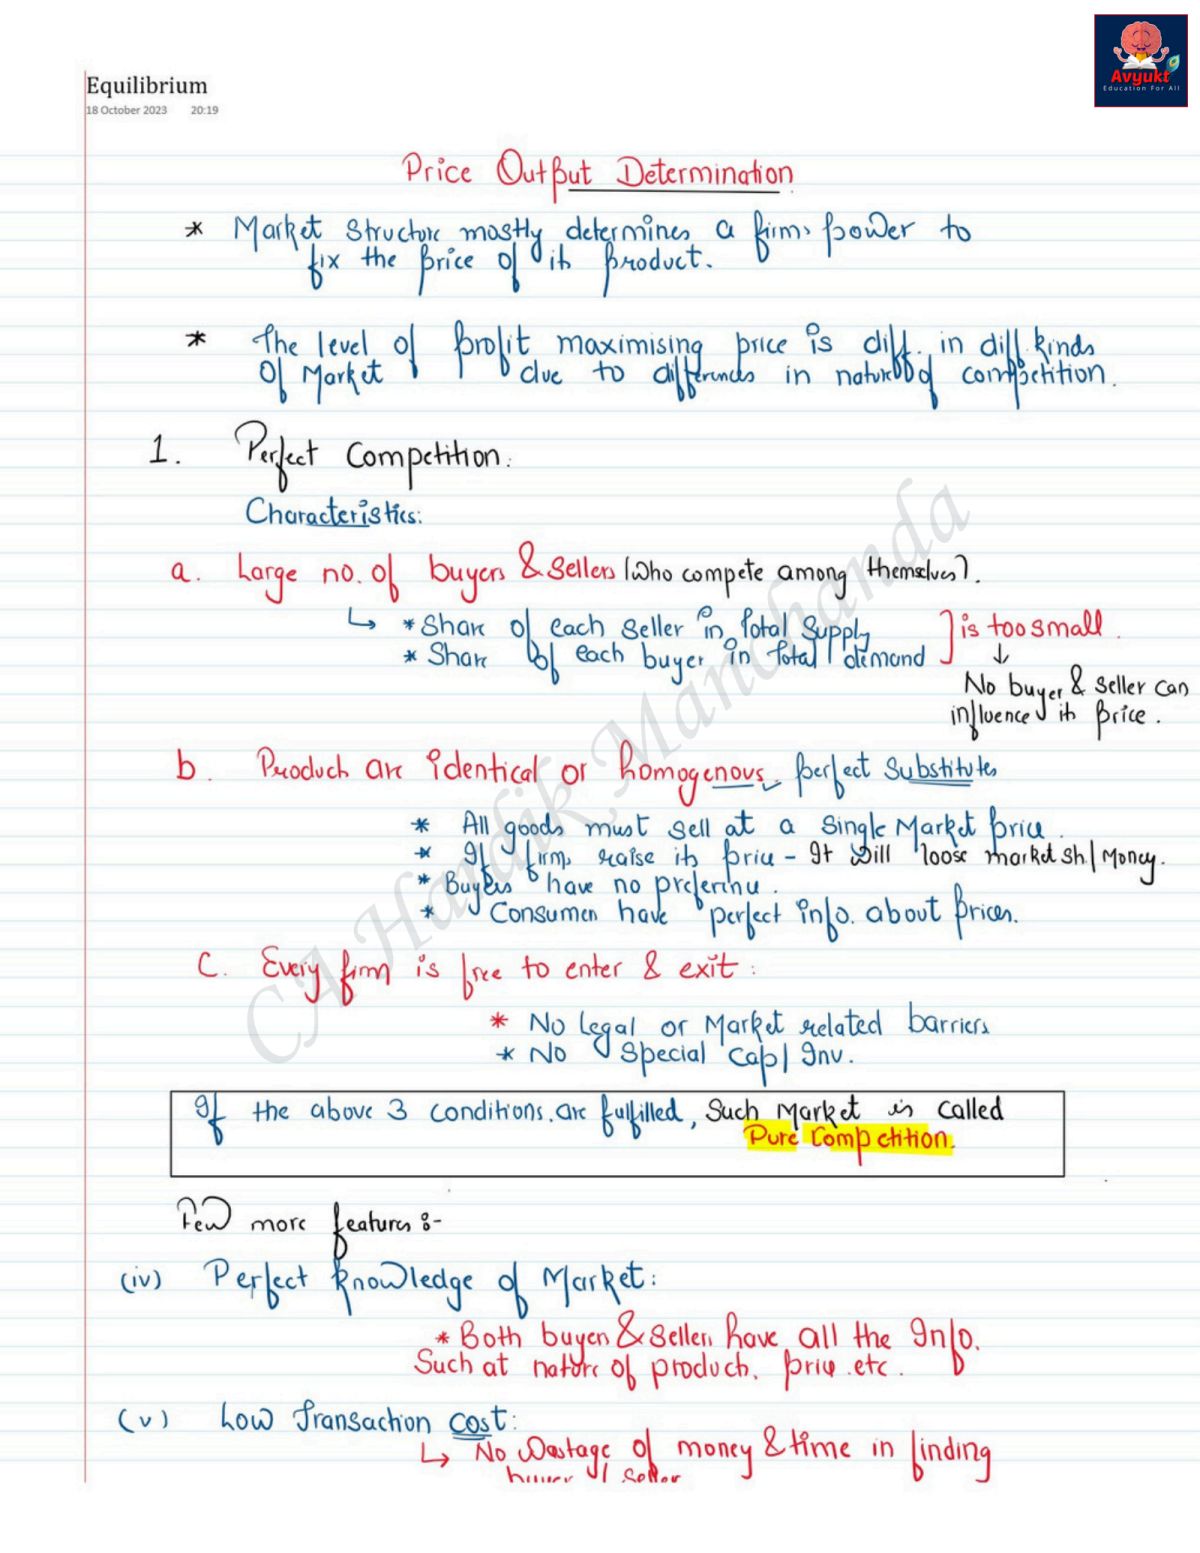 Avyukt
Education For All
Equilibrium
18 October 2023 20:19
Price Output Determination
* Market Structure mostly determines a firms power to
fix the price of its product.
* The level of profit maximising price is diff. in diff. kinds
Of Market due to differences in nature of competition.
1. Perfect Competition.
Characteristics:
a. Large no. of buyers & Sellers (Who compete among themselves).
↳ * Share of each Seller in Total Supply ] is too small.
* Share of each buyer in Total demand
↓
No buyer & Seller Can
influence its price.
b. Products are identical or homogenous, perfect Substitutes
* All goods must sell at a Single Market price.
* If firms raise its price - It Will loose market sh/Money.
* Buyers have no preference.
* Consumers have perfect info. about prices.
C. Every firm is free to enter & exit:
* No Legal or Market related barriers
* No Special Cap/Inv.
If the above 3 conditions. are fulfilled, Such Market is Called
Pure Competition.
Few more features:-
(iv) Perfect Knowledge of Market:
* Both buyers & Sellers have all the Info.
Such at nature of product, price etc.
(v) Low Transaction Cost:
↳ No Wastage of money & time in finding
buyer / Seller
CA Hardik Manchanda